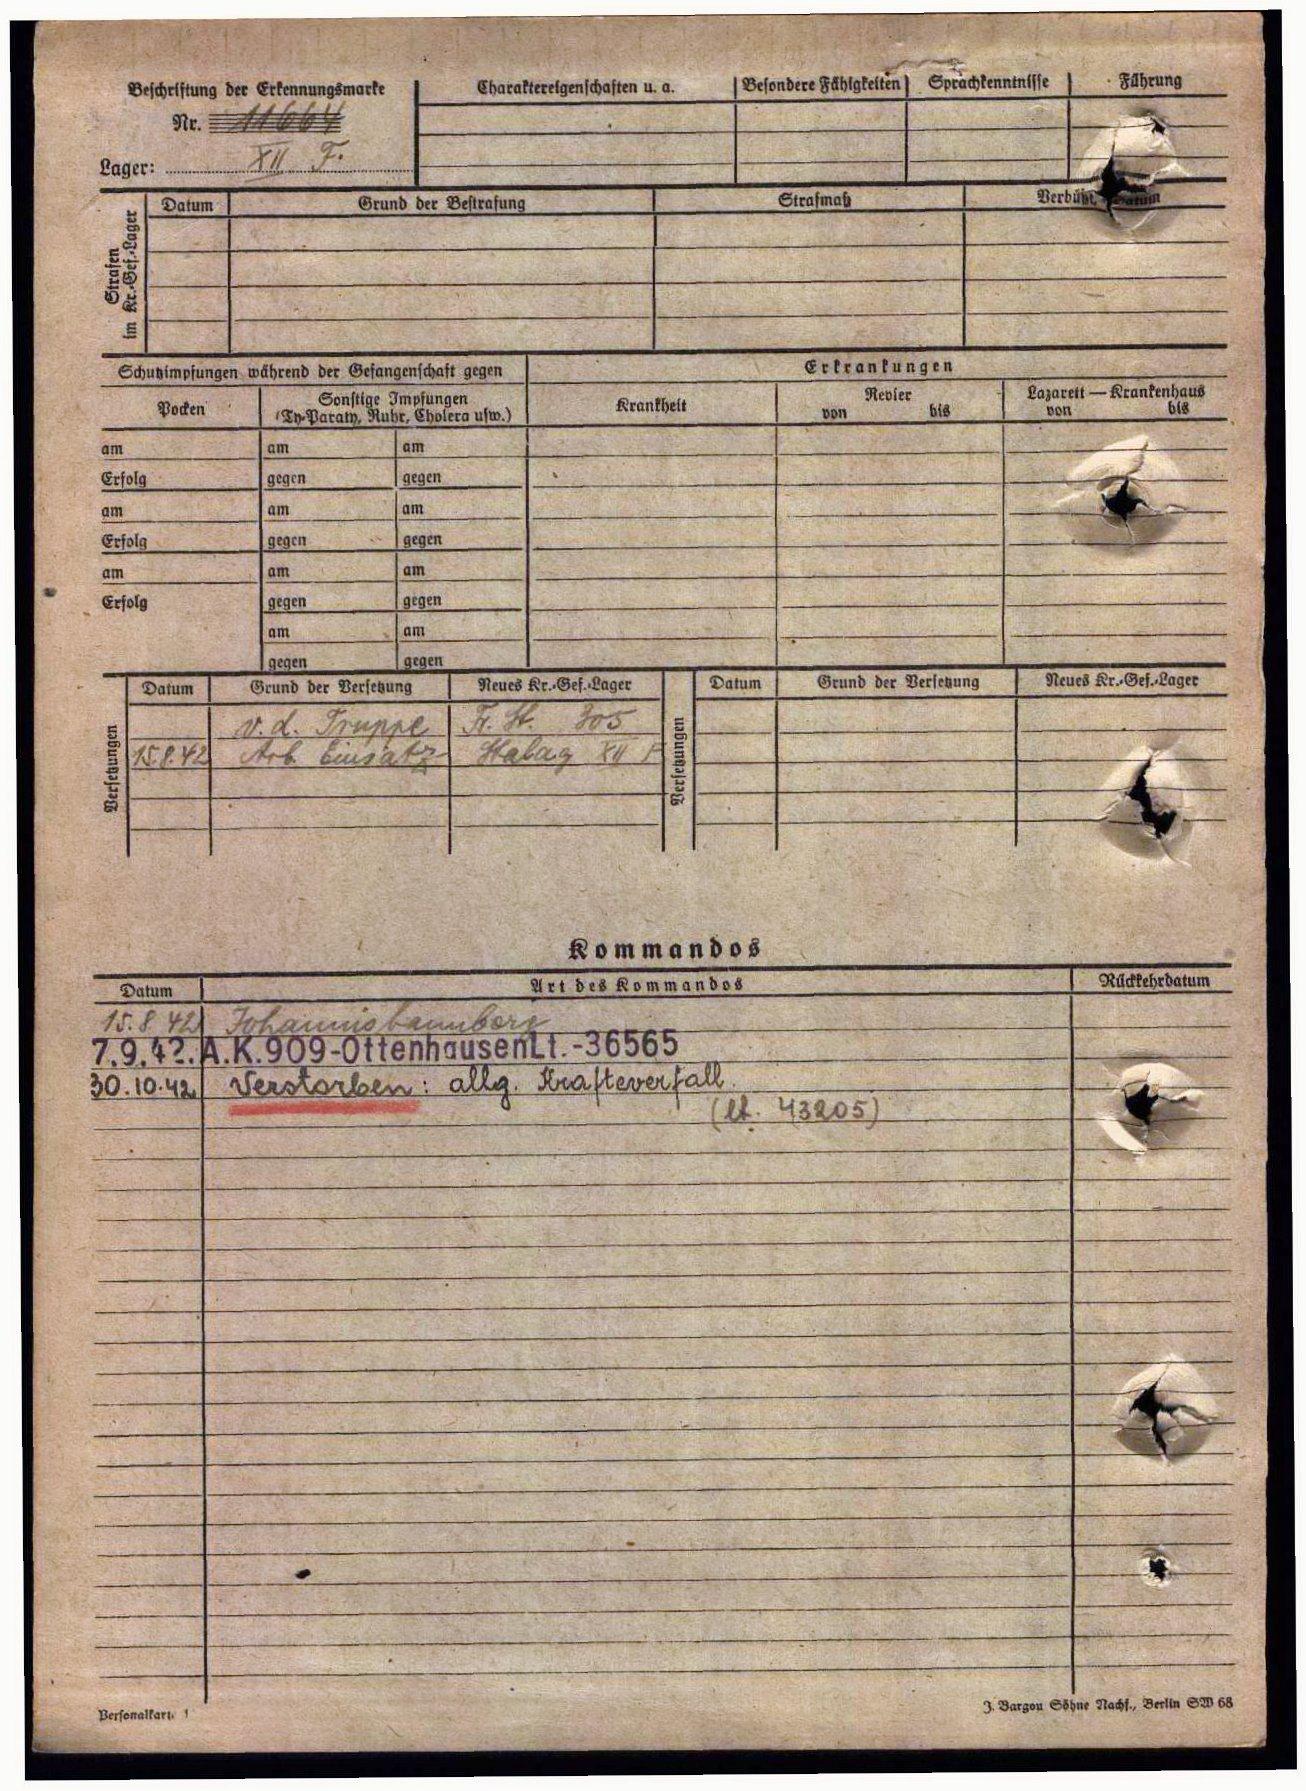 Beschriftung der Erkennungsmarke
Nr. 11664
Lager: XII F.
Charaktereigenschaften u. a.
Besondere Fähigkeiten
Sprachkenntnisse
Führung
Strafen im Kr.-Gef.-Lager
Datum
Grund der Bestrafung
Strafmaß
Verbüßt, Datum
Schutzimpfungen während der Gefangenschaft gegen
Erkrankungen
Pocken
Sonstige Impfungen
(Ty-Paraty, Ruhr, Cholera usw.)
Krankheit
Revier
von bis
Lazarett — Krankenhaus
von bis
am am am
Erfolg gegen gegen
am am am
Erfolg gegen gegen
am am am
Erfolg gegen gegen
am am
gegen gegen
Versetzungen
Datum Grund der Versetzung Neues Kr.-Gef.-Lager
v. d. Truppe Fr. St. 305
15.8.42 Arb. Einsatz Stalag XII F
Versetzungen
Datum Grund der Versetzung Neues Kr.-Gef.-Lager
Kommandos
Datum Art des Kommandos Rückkehrdatum
15.8.42 Johannisbannberg
7.9.42. A.K.909-Ottenhausen Lt.-36565
30.10.42 Verstorben: allg. Kräfteverfall.
(lt. 43205)
Personalkarte 1
J. Bargou Söhne Nachf., Berlin SW 68